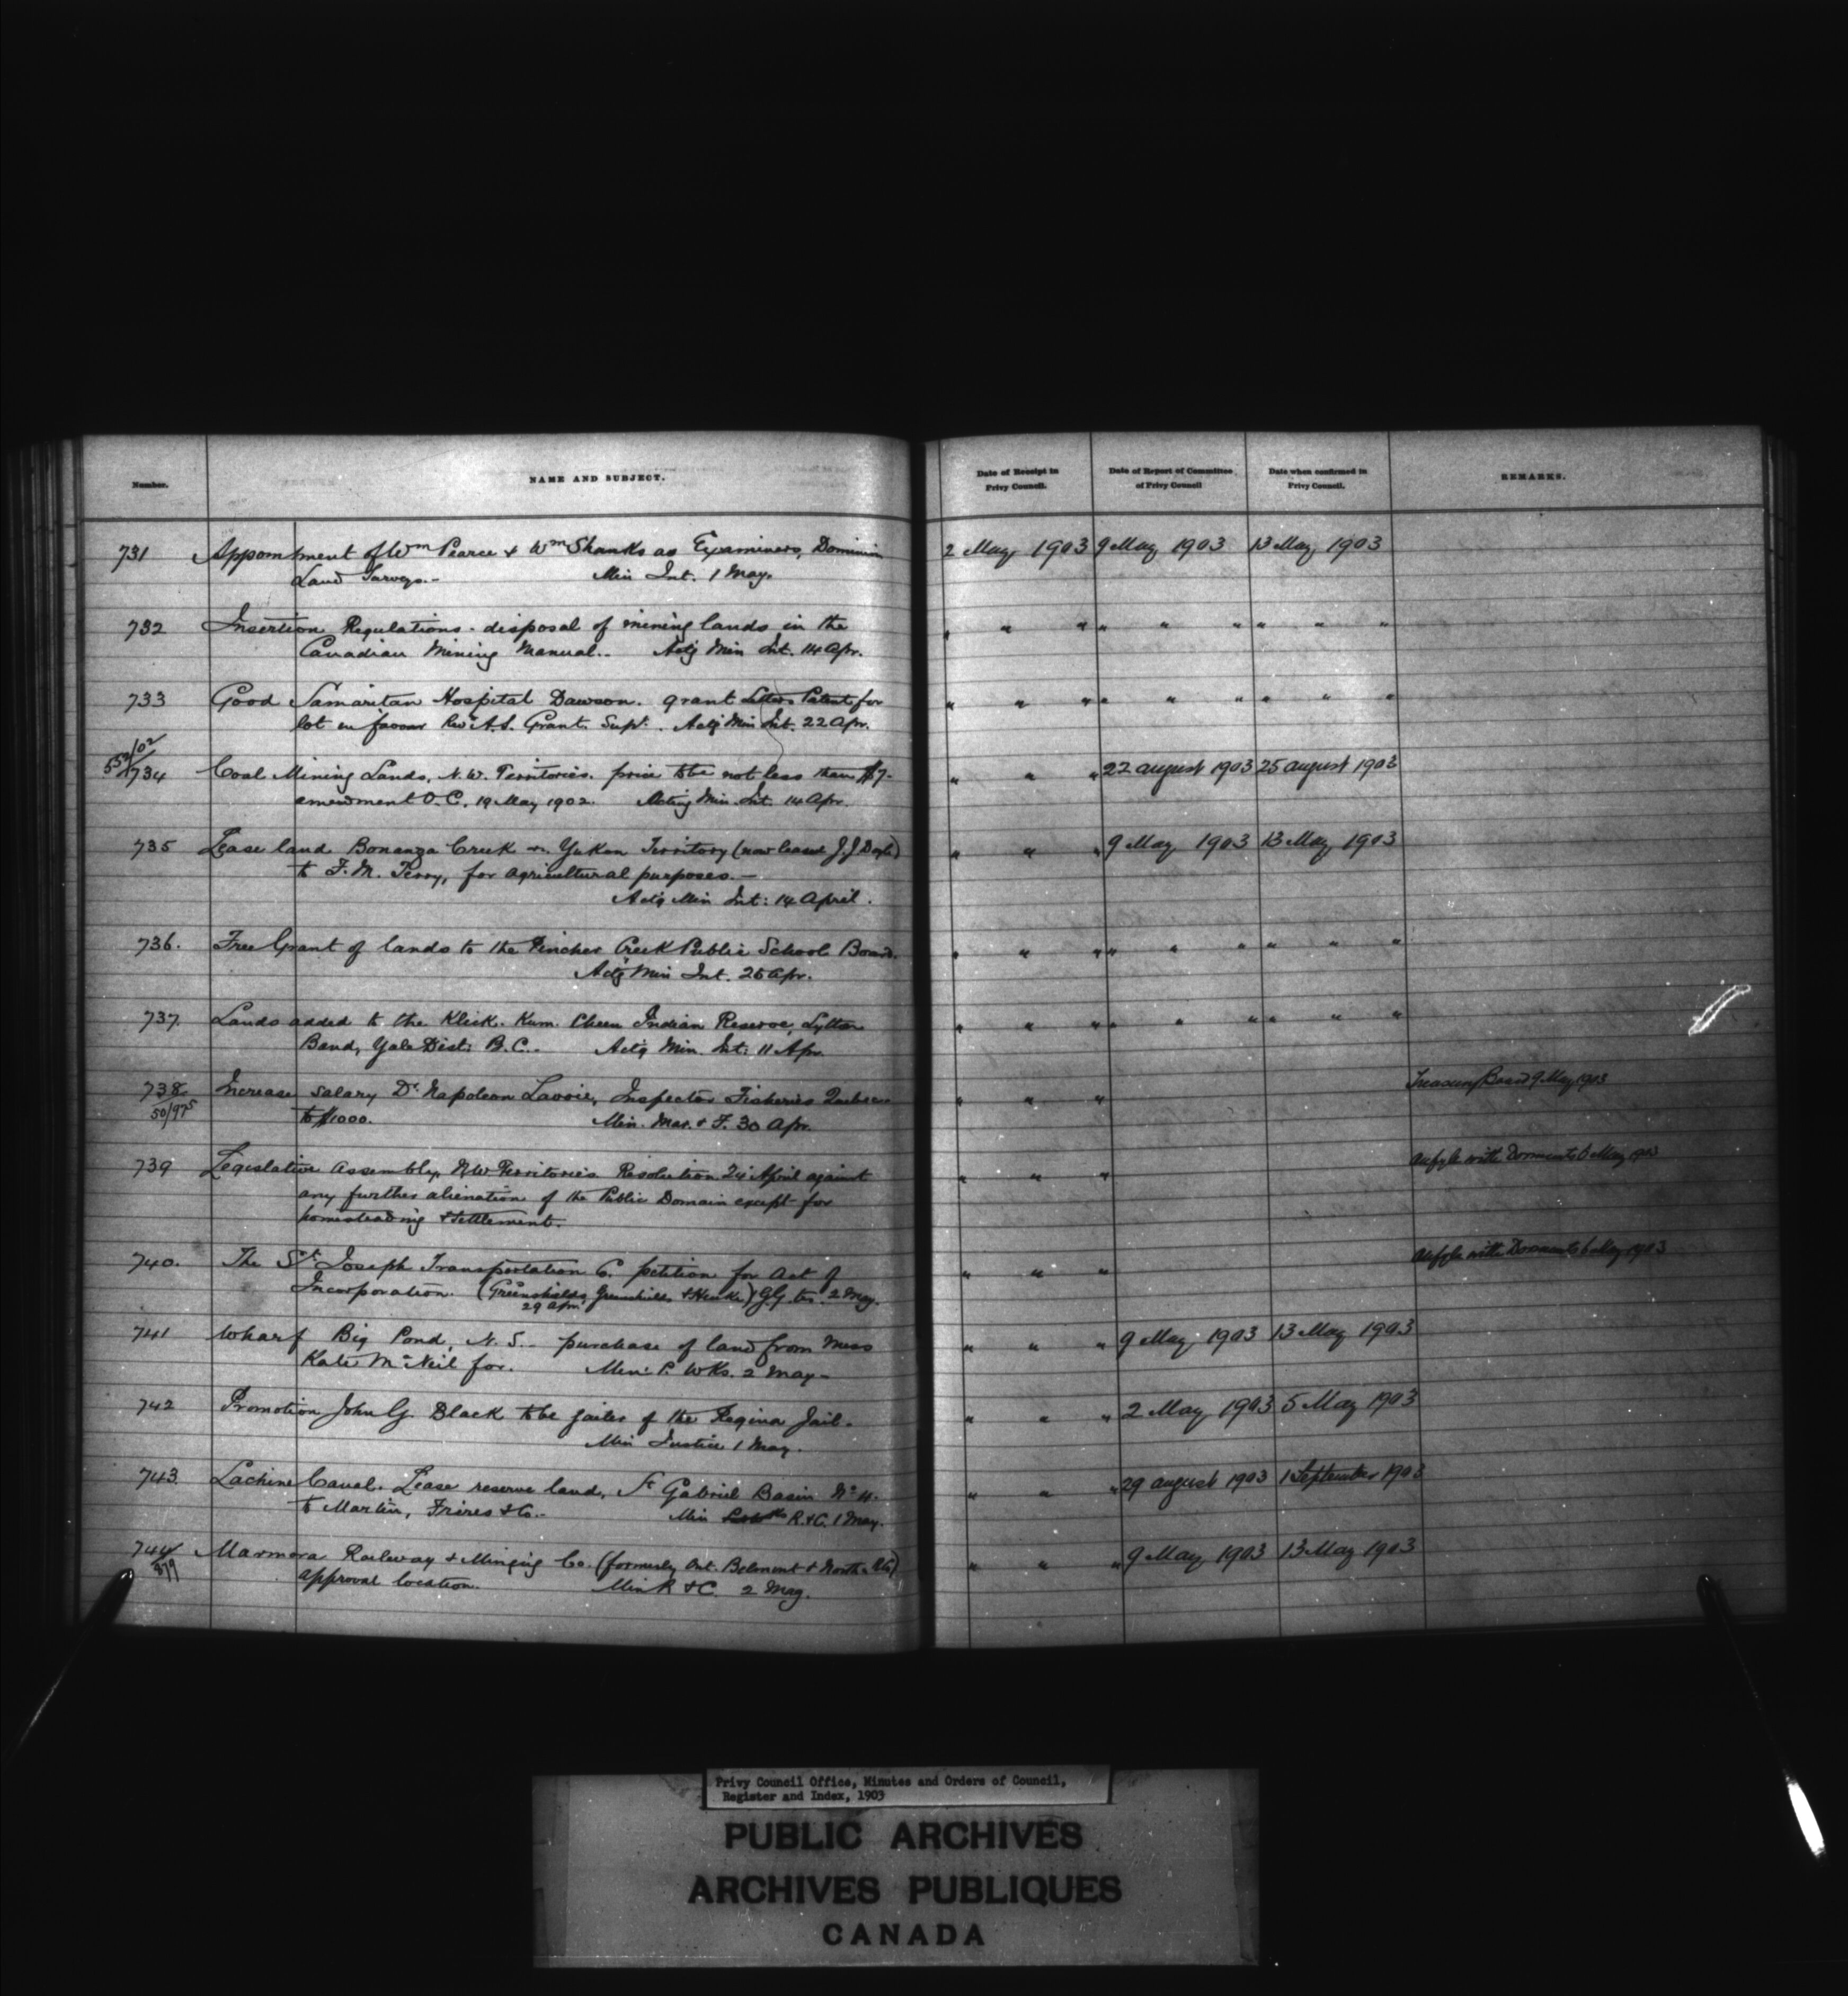 Number. NAME AND SUBJECT. Date of Receipt in Privy Council. Date of Report of Committee of Privy Council Date when confirmed in Privy Council. REMARKS.
731 Appointment of Wm Pearce & Wm Shanks as Examiners, Dominion 2 May 1903 9 May 1903 13 May 1903
Land Surveys.- Min Int. 1 May.
732 Insertion Regulations - disposal of mining lands in the " " " " " " " " "
Canadian Mining Manual.. Actg Min Int. 14 Apr.
733 Good Samaritan Hospital Dawson. grant Letters Patent for " " " " " " " " "
lot in favour Revd A.S. Grant. Supt. Actg Min Int. 22 Apr.
552/02
734 Coal Mining Lands, N.W. Territories. price to be not less than $7- " " " 22 august 1903 25 august 1903
amendment O.C. 19 May 1902. Acting Min. Int. 14 Apr.
735 Lease land Bonanza Creek Yukon Territory (now leased J.J Doyle) " " " 9 May 1903 13 May 1903
to F.M. Terry, for agricultural purposes.-
Actg Min Int: 14 April.
736. Free Grant of lands to the Pincher Creek Public School Board. " " " " " " " " "
Actg Min Int. 25 Apr.
737. Lands added to the Klick. Kum. Cheen Indian Reserve, Lytton " " " " " " " " "
Band, Yale Dist: B.C.. Actg Min. Int: 11 Apr.
738 Increase salary Dr. Napoleon Lavoie, Inspector Fisheries Quebec " " " Treasury Board 9 May 1903
50/975 to $1000. Min. Mar. & F. 30 Apr.
739 Legislative Assembly, NW Territories Resolution 24 April against " " " with Dormants 6 May 1903
any further alienation of the Public Domain except for
homesteading & settlement.
740. The St. Joseph Transportation C. petition for Act of " " " with Dormants 6 May 1903
Incorporation. (Greenshields, Greenshields & ) G.G. 2 May.
29 Apr.
741 Wharf Big Pond, N.S.- purchase of land from Miss " " " 9 May 1903 13 May 1903
Kate McNeil for. Min: P. Wks. 2 May-
742 Promotion John G. Black to be jailer of the Regina Jail- " " " 2 May 1903 5 May 1903
Min Justice 1 May.
743. Lachine Canal. Lease reserve land, St Gabriel Basin No 4. " " " 29 august 1903 1 September 1903
to Martin, Frires & Co.- Min R.&C. 1 May.
744 Marmora Railway & Mining Co. (formerly Ont. Belmont & North. ) " " " 9 May 1903 13 May 1903
879 approval location. Min R & C. 2 May.
Privy Council Office, Minutes and Orders of Council,
Register and Index, 1903
PUBLIC ARCHIVES
ARCHIVES PUBLIQUES
CANADA